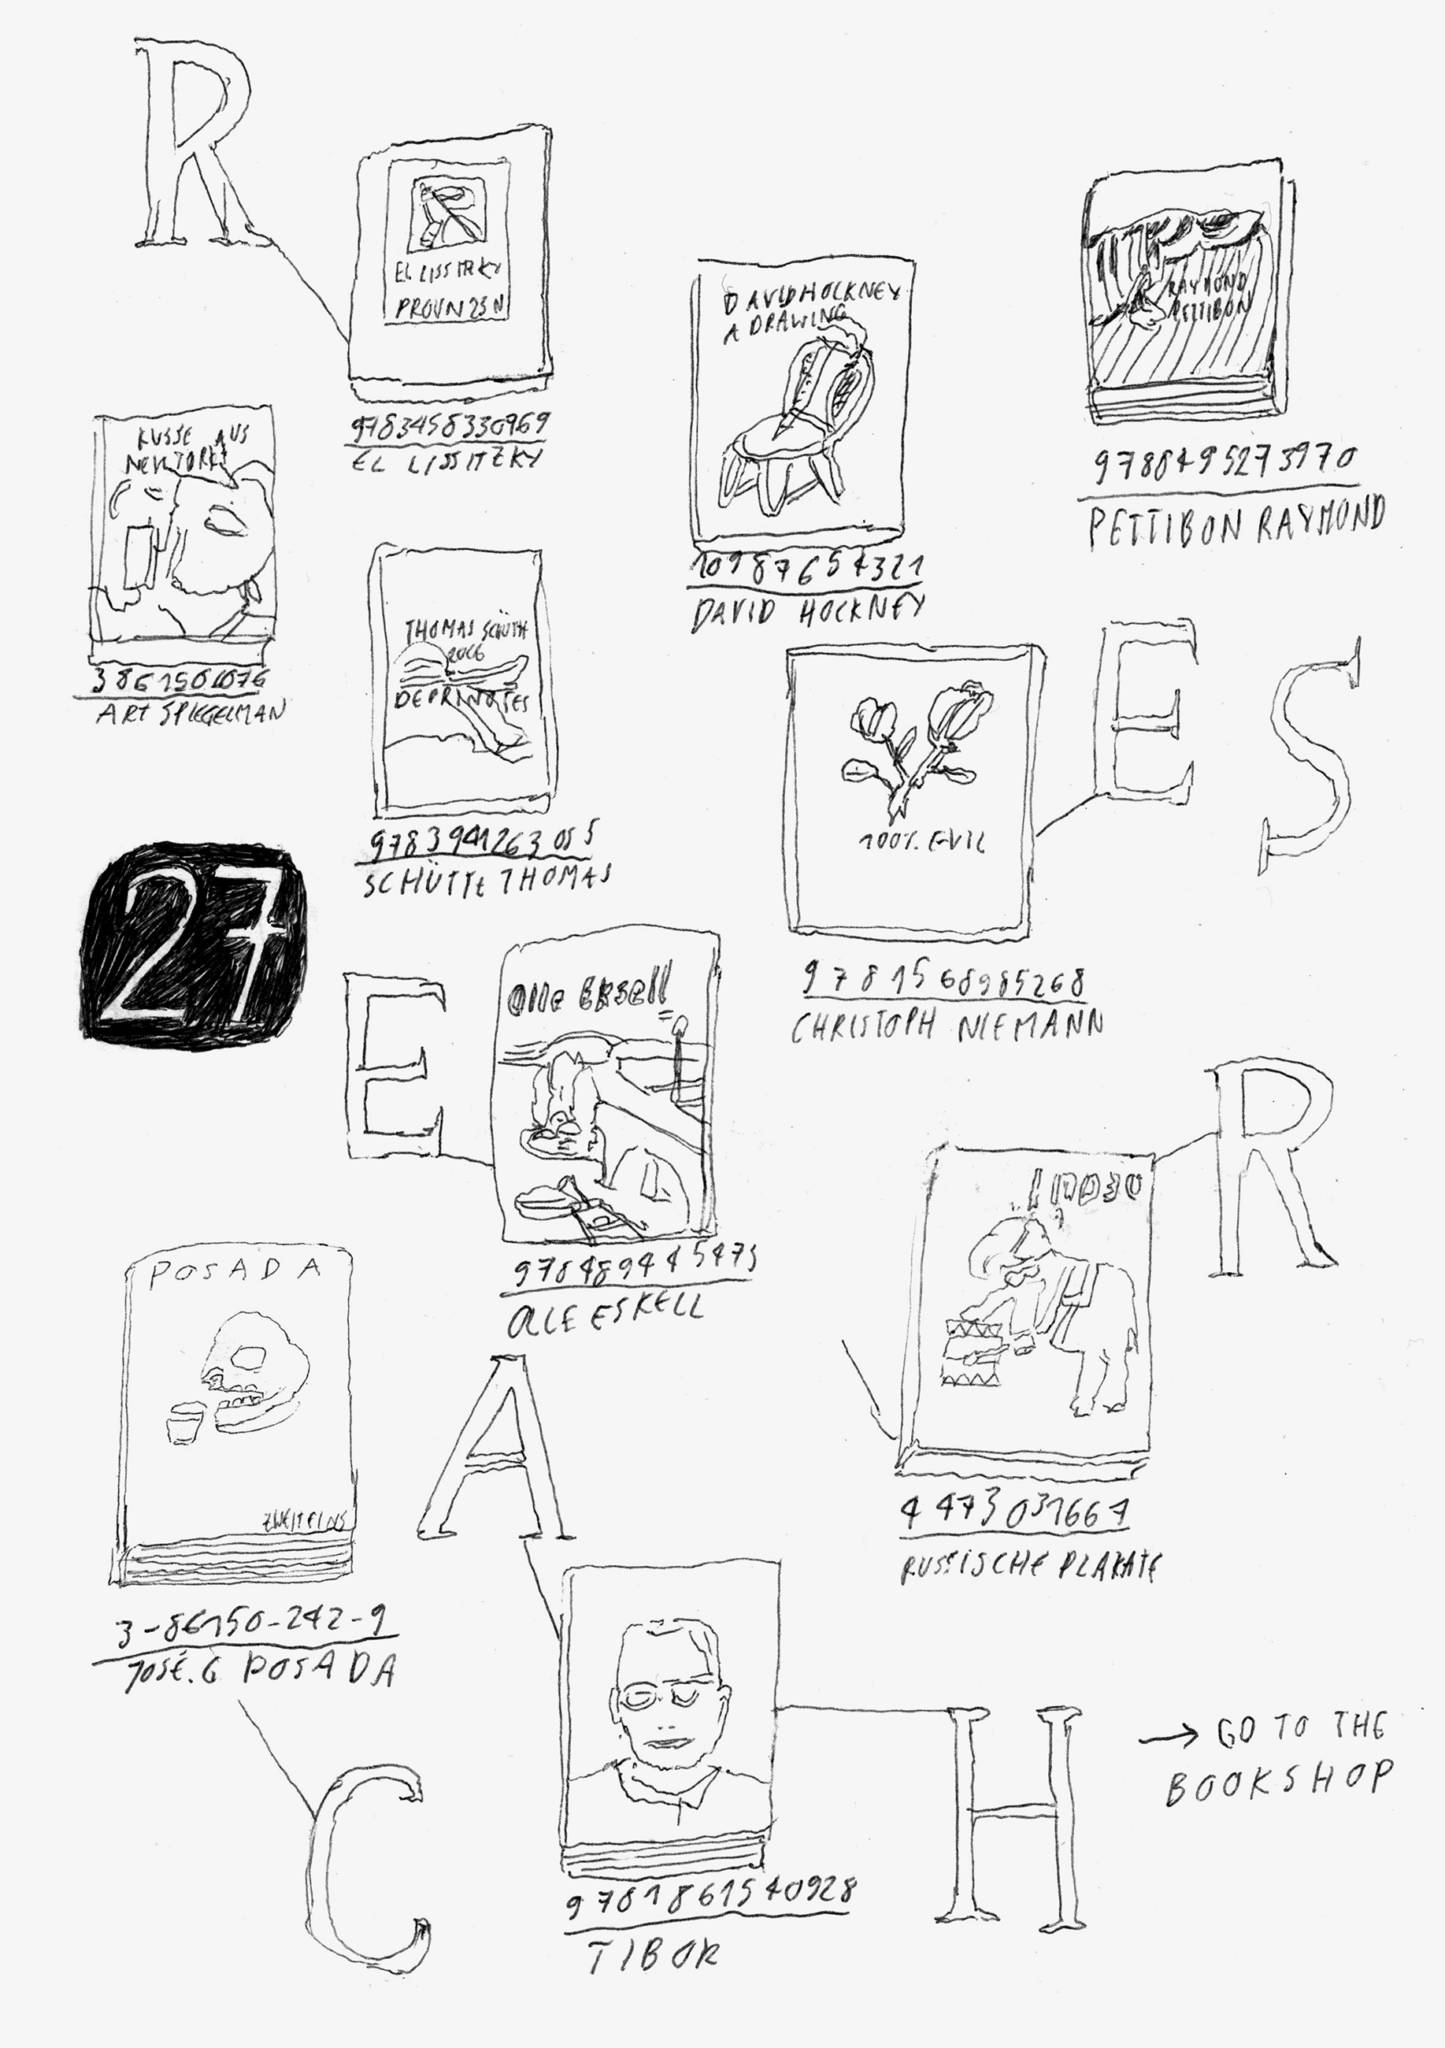 R
EL LISSITZKY
PROUN 23 N
9783458330769
EL LISSITZKY
DAVID HOCKNEY
A DRAWING
10987654321
DAVID HOCKNEY
RAYMOND
PETTIBON
9788495273970
PETTIBON RAYMOND
KUSSE AUS
NEW YORK
ART SPIEGELMAN
THOMAS SCHÜTTE
2006
DEPRINOTES
SCHÜTTE THOMAS
E
S
100% EVIL
9781568985268
CHRISTOPH NIEMANN
27
E
Olle Eksell
9784894445475
OLLE ESKELL
R
4473031667
RUSSISCHE PLAKATE
POSADA
ZWEITEINS
3-86150-242-9
JOSÉ.G POSADA
A
9781861540928
TIBOR
C
H
→ GO TO THE
BOOKSHOP